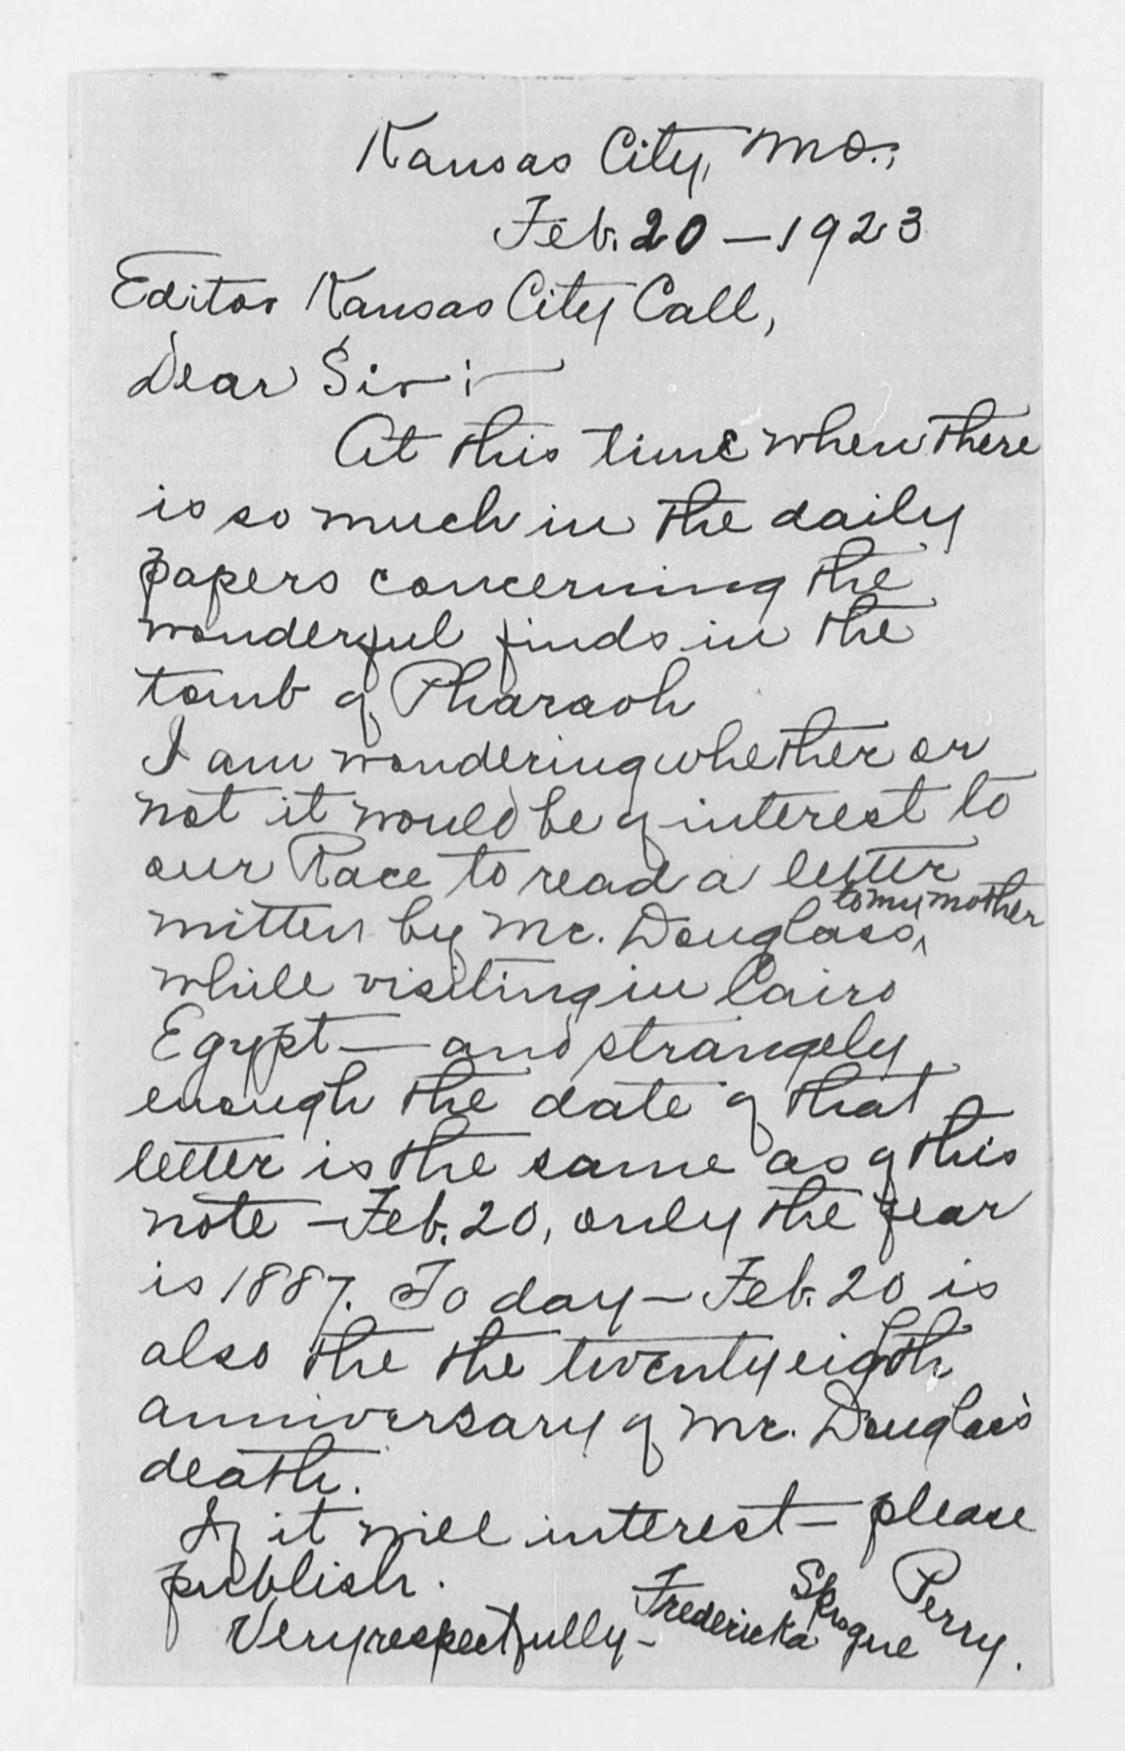 Kansas City, Mo.,
Feb. 20 — 1923
Editor Kansas City Call,
Dear Sir:—
At this time when there
is so much in the daily
papers concerning the
wonderful finds in the
tomb of Pharaoh
I am wondering whether or
not it would be of interest to
our Race to read a letter
written by Mr. Douglass, to my mother
while visiting in Cairo
Egypt — and strangely
enough the date of that
letter is the same as of this
note — Feb. 20, only the year
is 1887. To day — Feb. 20 is
also the the twenty eighth
anniversary of Mr. Douglass
death.
If it will interest — please
publish.
Very respectfully — Fredericka Sprague Perry.